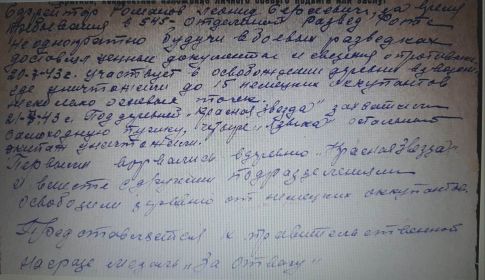 Ефрейтор Романов Леонид Сергеевич, за время
пребывания в 545 отдельной развед роте
неоднократно будучи в боевых разведках
доставил ценные документы и сведения о противнике.
20-7-43г. участвует в освобождении деревни
где уничтожили до 15 немецких оккупантов
несколько огневых точек.
21-7-43г. Под деревней "Красная Звезда" захватили
самоходную пушку, остальной
экипаж уничтожили.
Первыми ворвались в деревню "Красная Звезда"
и вместе с другими подразделениями
освободили деревню от немецких оккупантов.
Представляется к правительственной
награде медаль "За отвагу"